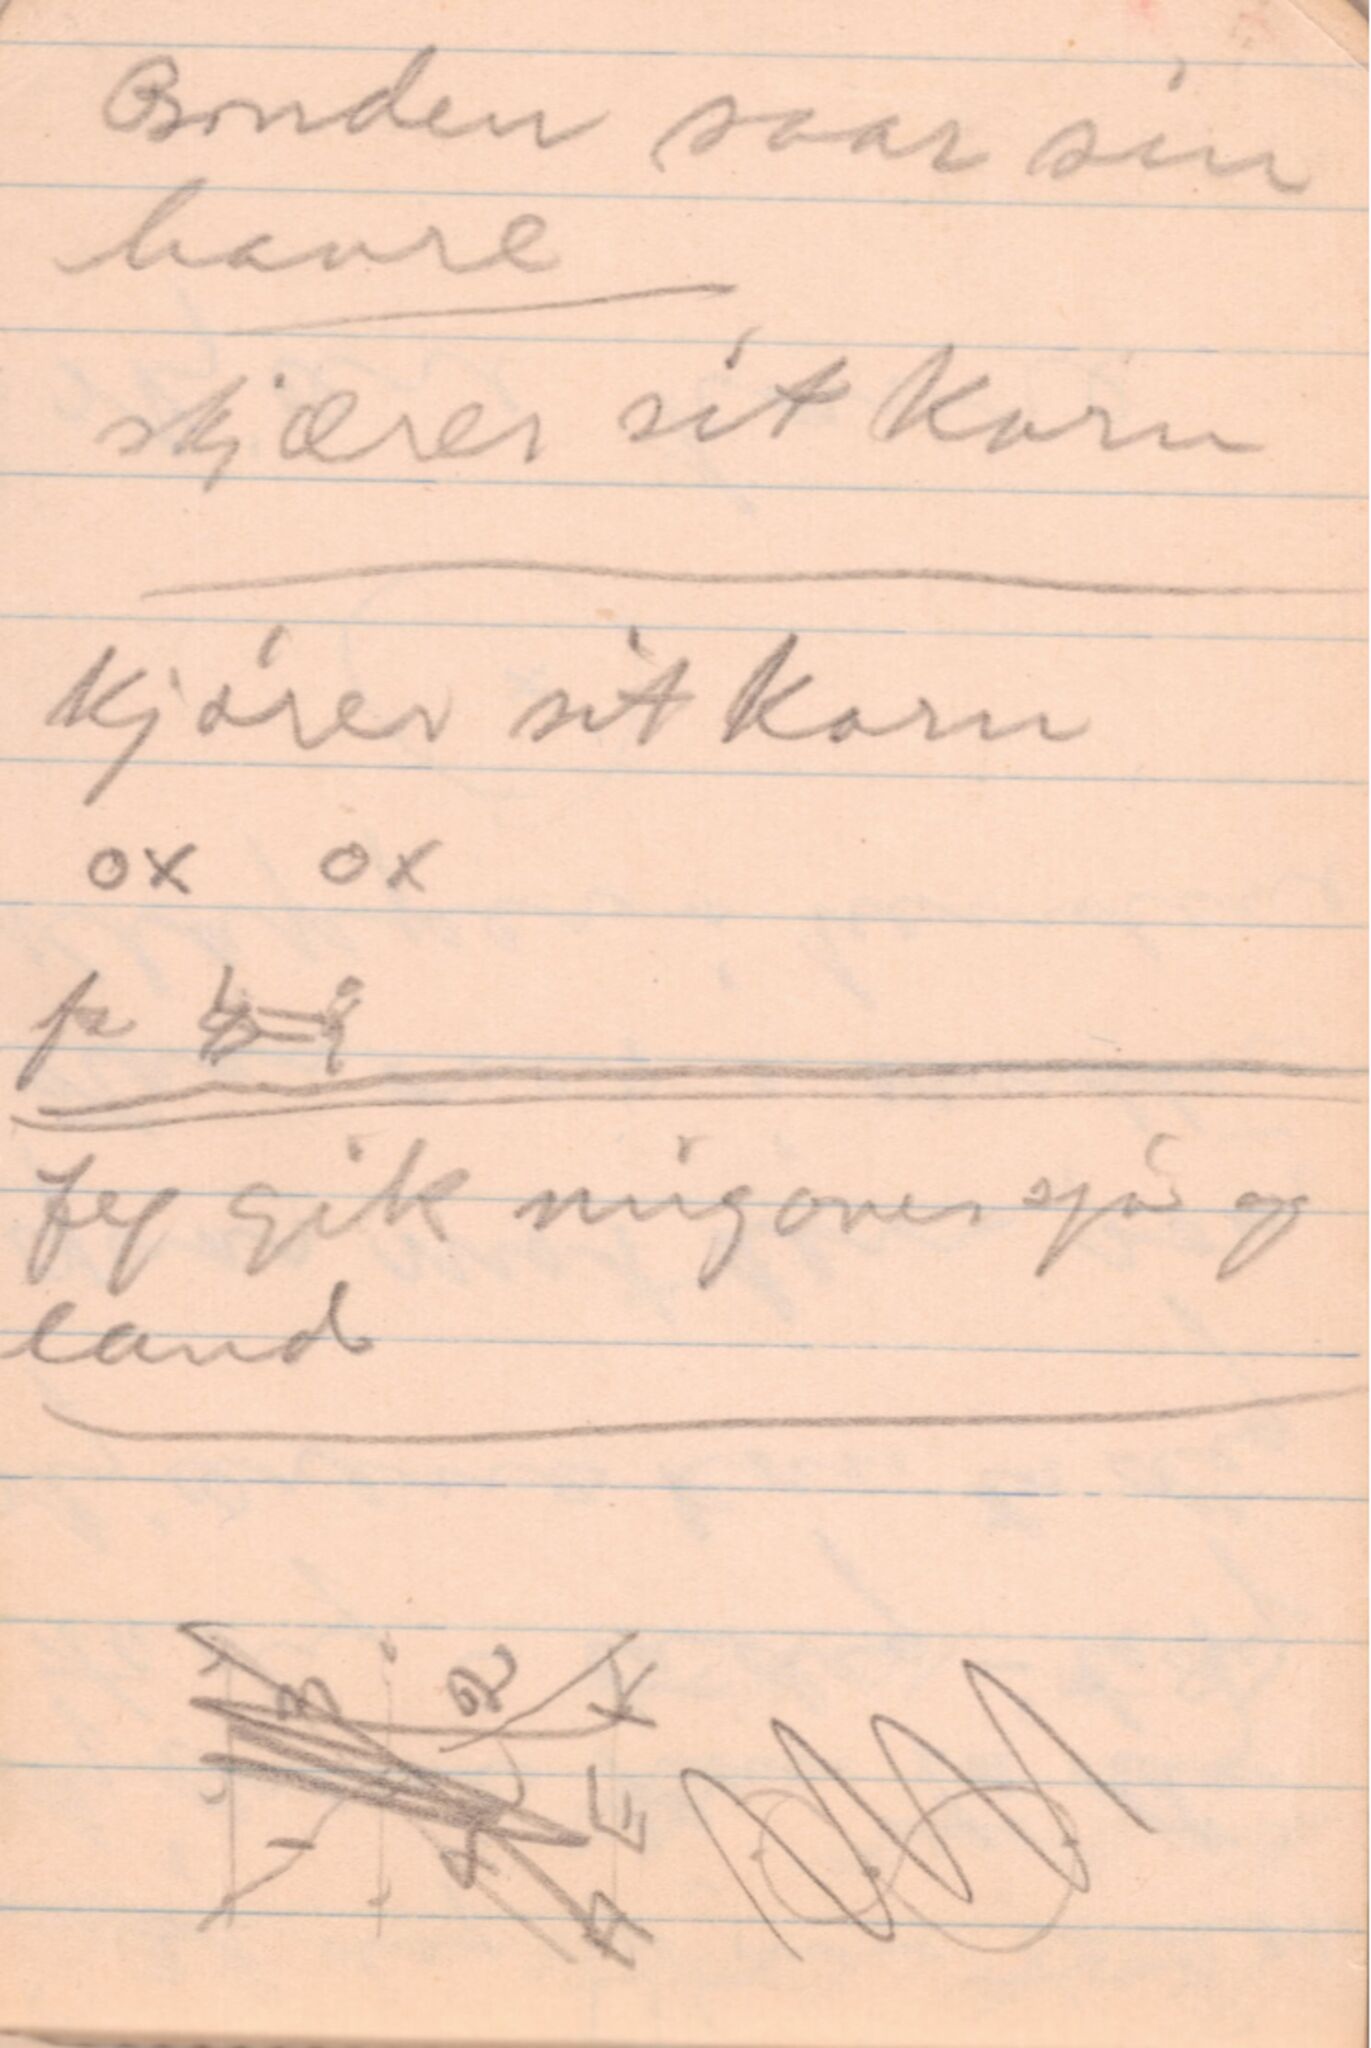 Bonden saar sin
havre
skjærer sit korn
kjörer sit korn
ox ox
Jeg gik mig over sjö og
land